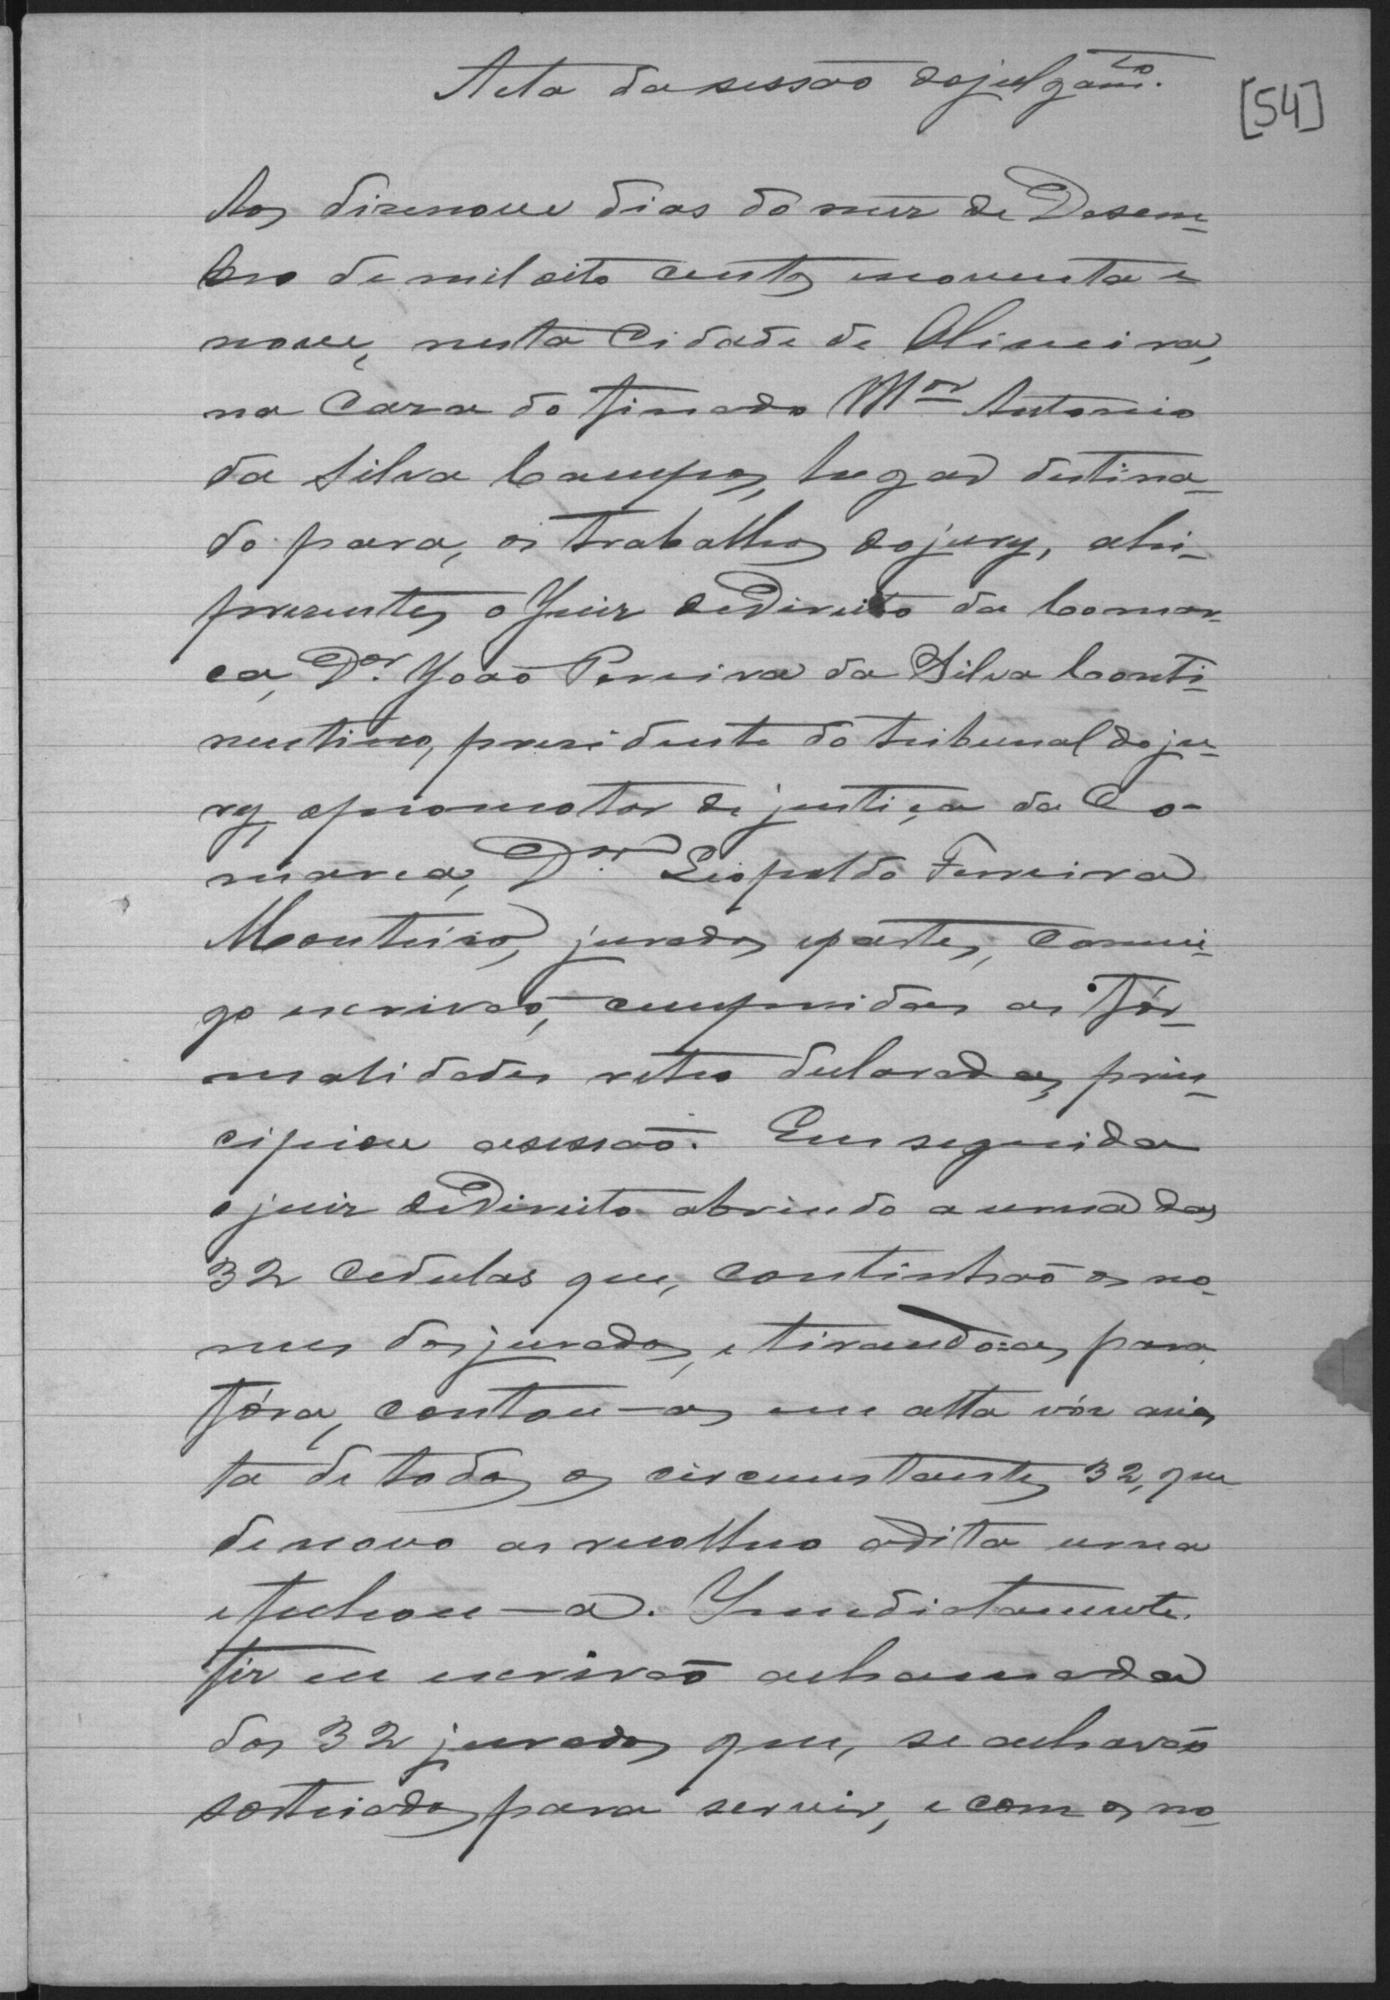 Acta da sessão do julgam.to
[54]
Aos disenove dias do mez de Desem-
bro de mil oito centos e noventa e
nove, nesta Cidade de Oliveira,
na Casa do finado M.or Antonio
da Silva Campos, lugar destina-
do para, os trabalhos do jury, ahi-
presentes o Juiz de Direito da Comar-
ca, D.or João Pereira da Silva Conti-
nentino, presidente do tribunal do ju-
ry, o promotor de justiça da Co-
marca, D.or Leopoldo Ferreira
Monteiro, jurados e partes, commi-
go escrivão, cumpridas as fór-
malidades retro declaradas, prin-
cipiou a sessão. Em seguida
o juiz de Direito abrindo a urna das
32 cedulas que, continhão os no-
mes dos jurados, e tirando-as para
fóra, contou-as em alta vóz a vis
ta de todos os circumstantes 32, que
de novo as recolheo a dita urna
e fechou-a. Immediatamente
fiz eu escrivão a chamada
dos 32 jurados que, se achavão
sorteiados para servir, e com os no-